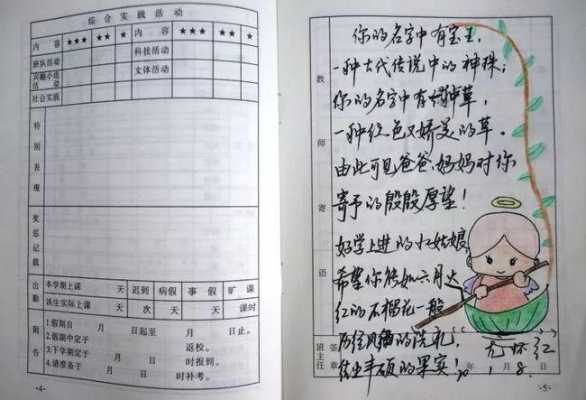 综合实践活动
内容 ★★★ ★★ ★ 内容 ★★★ ★★ ★
班队活动 科技活动
兴趣小组活动 文体活动
社会实践
特别表现
奖惩记载
出勤 本学期上课 天 迟到 病假 事假 旷课
该生实际上课 天 次 天 天 课时
附告
1.假期自 月 日起至 月 日止。
2.假期中定于 返校。
3.下学期定于 月 日 时报到。
4.请准备于 月 日 时补考。
-4-
教师寄语
你的名字中有宝玉,
一种古代传说中的神珠;
你的名字中有 草,
一种红色又娇美的草。
由此可见爸爸、妈妈对你
寄予的殷殷厚望!
好学上进的小姑娘,
希望你能如六月火
红的石榴花一般
历经风 的洗礼,
结出丰硕的果实!
班主任 签章
尤怀红
年 月 日
10.1.8.
-5-